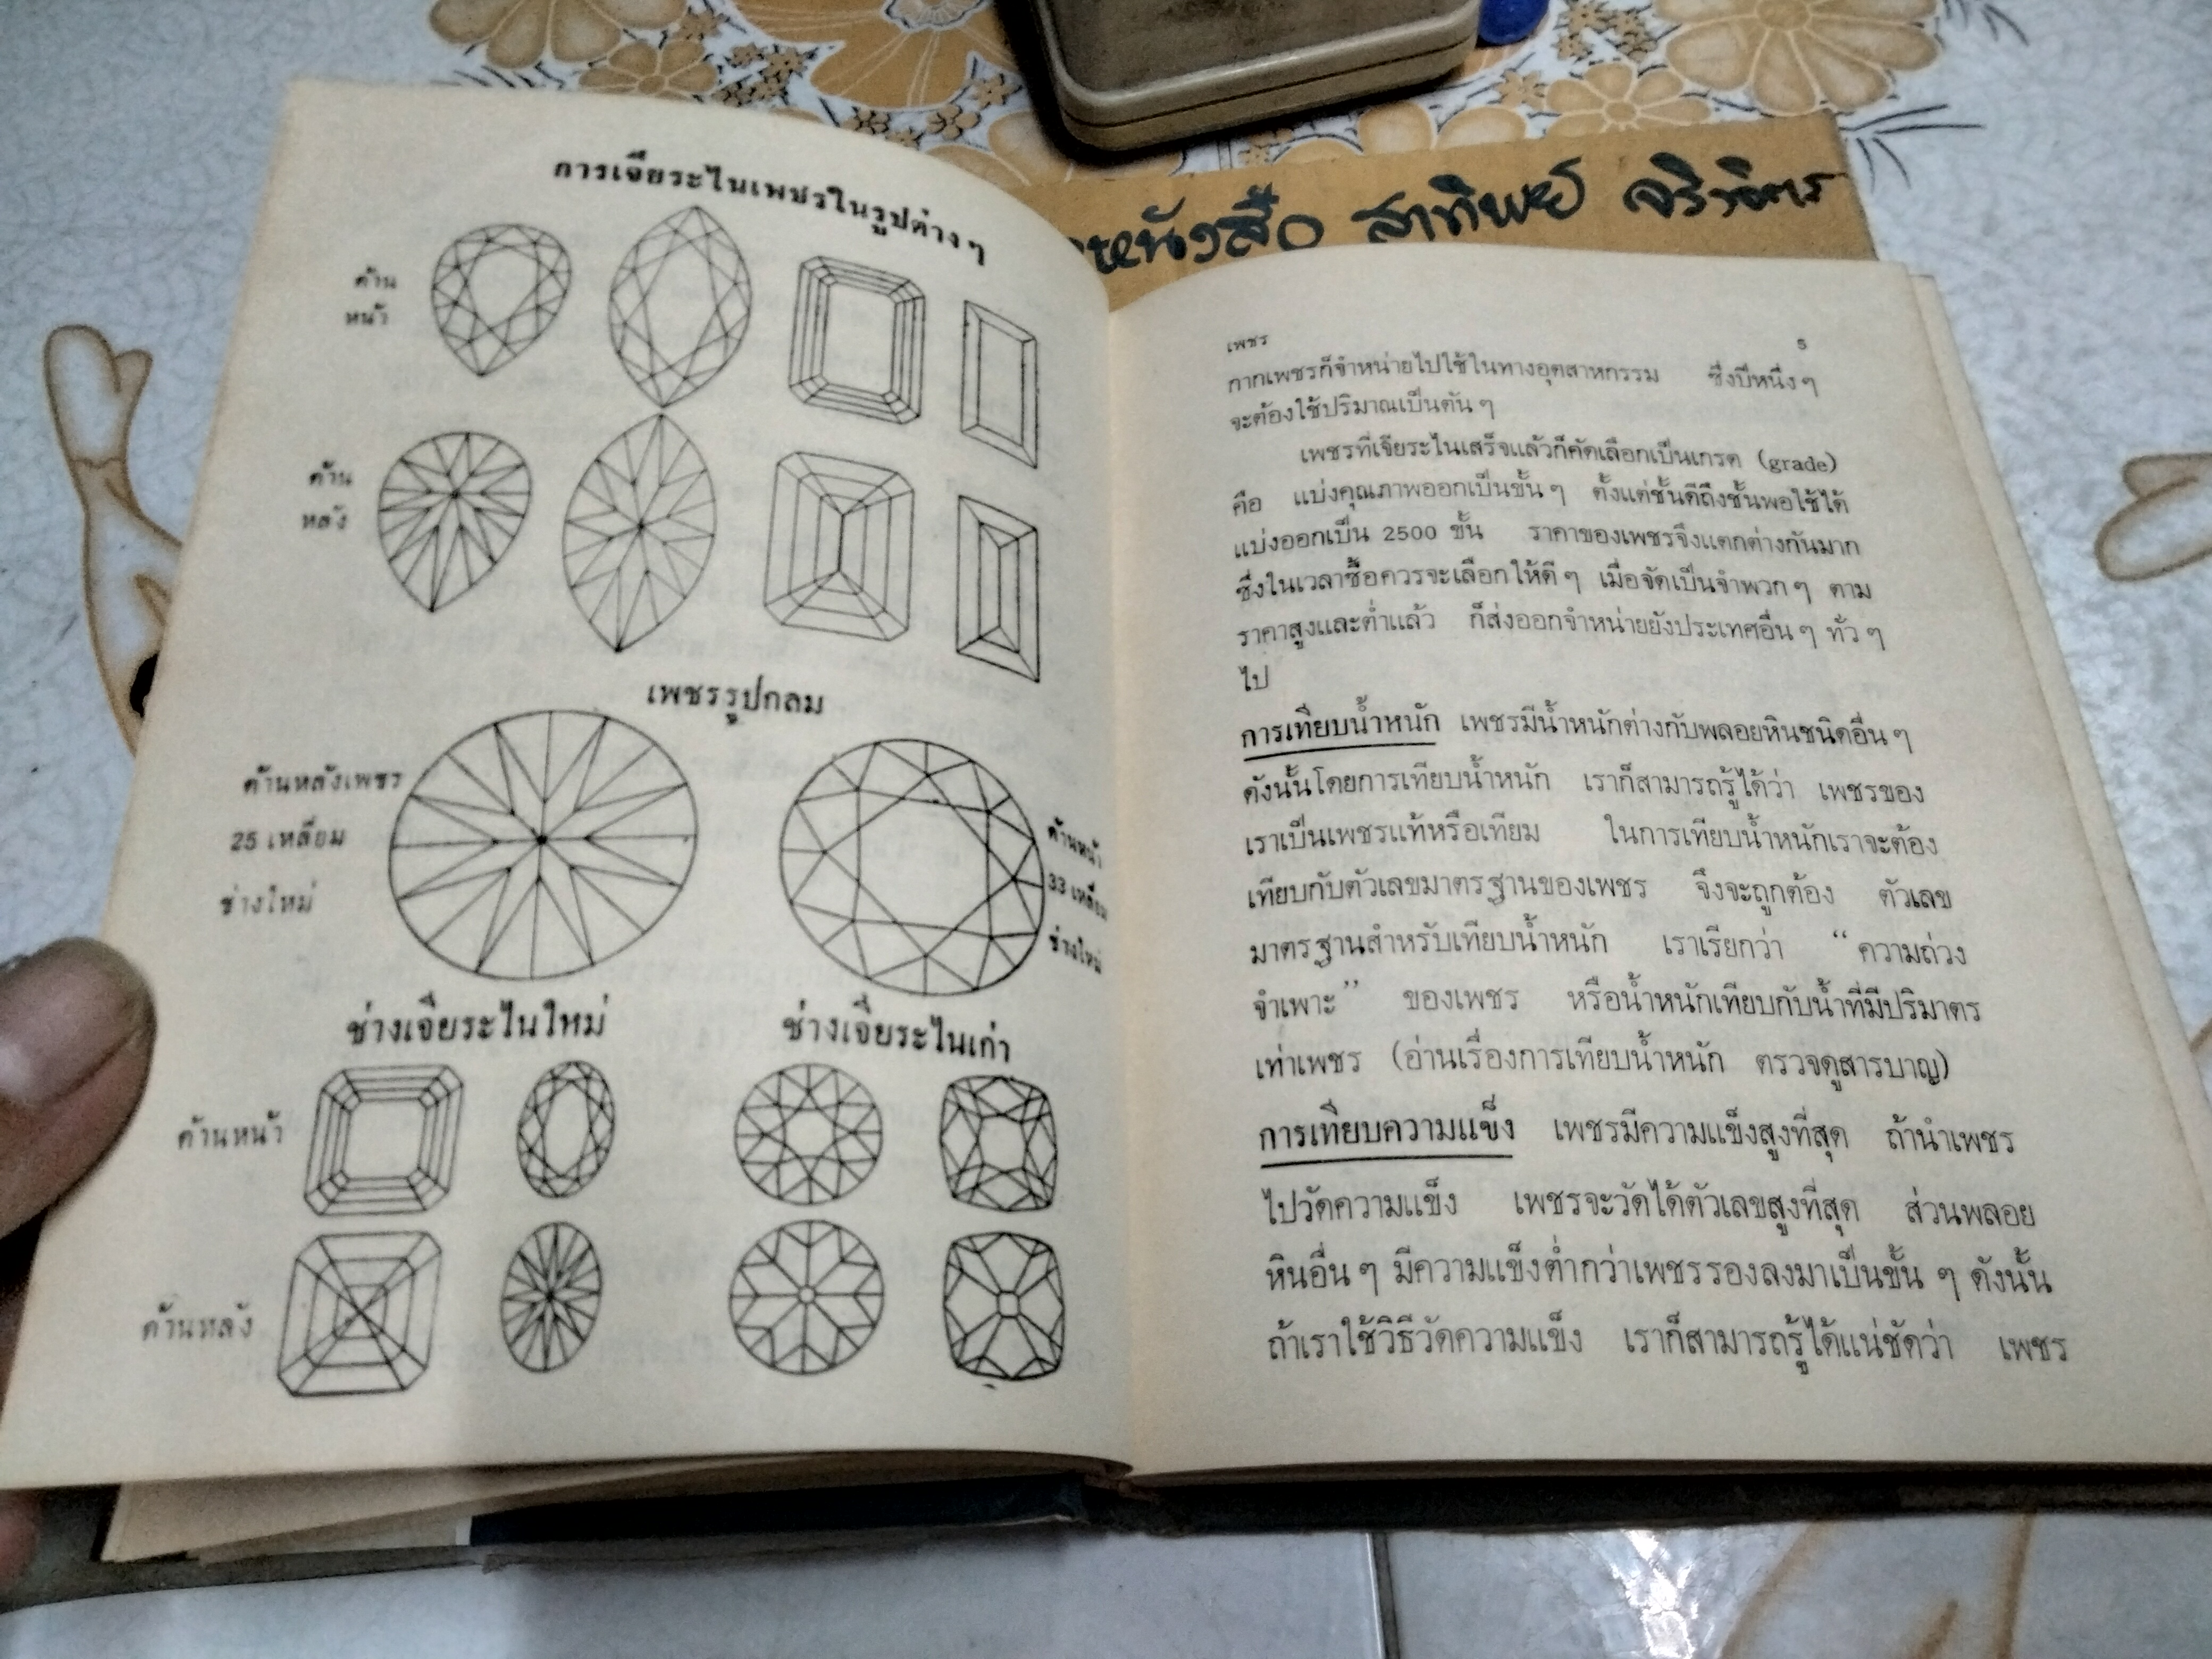 การเจียระไนเพชรในรูปต่างๆ
ด้าน
หน้า
ด้าน
หลัง
เพชรรูปกลม
ด้านหลังเพชร
25 เหลี่ยม
ช่างใหม่
ด้านหน้า
33 เหลี่ยม
ช่างใหม่
ช่างเจียระไนใหม่
ช่างเจียระไนเก่า
ด้านหน้า
ด้านหลัง
หนังสือ สาทิพย์
เพชร 5
กากเพชรก็จำหน่ายไปใช้ในทางอุตสาหกรรม ซึ่งปีหนึ่งๆ
จะต้องใช้ปริมาณเป็นตันๆ
เพชรที่เจียระไนเสร็จแล้วก็คัดเลือกเป็นเกรด (grade)
คือ แบ่งคุณภาพออกเป็นขั้นๆ ตั้งแต่ชั้นดีถึงชั้นพอใช้ได้
แบ่งออกเป็น 2500 ขั้น ราคาของเพชรจึงแตกต่างกันมาก
ซึ่งในเวลาซื้อควรจะเลือกให้ดีๆ เมื่อจัดเป็นจำพวกๆ ตาม
ราคาสูงและต่ำแล้ว ก็ส่งออกจำหน่ายยังประเทศอื่นๆ ทั่วๆ
ไป
การเทียบน้ำหนัก เพชรมีน้ำหนักต่างกับพลอยหินชนิดอื่นๆ
ดังนั้นโดยการเทียบน้ำหนัก เราก็สามารถรู้ได้ว่า เพชรของ
เราเป็นเพชรแท้หรือเทียม ในการเทียบน้ำหนักเราจะต้อง
เทียบกับตัวเลขมาตรฐานของเพชร จึงจะถูกต้อง ตัวเลข
มาตรฐานสำหรับเทียบน้ำหนัก เราเรียกว่า “ความถ่วง
จำเพาะ” ของเพชร หรือน้ำหนักเทียบกับน้ำที่มีปริมาตร
เท่าเพชร (อ่านเรื่องการเทียบน้ำหนัก ตรวจดูสารบาญ)
การเทียบความแข็ง เพชรมีความแข็งสูงที่สุด ถ้านำเพชร
ไปวัดความแข็ง เพชรจะวัดได้ตัวเลขสูงที่สุด ส่วนพลอย
หินอื่นๆ มีความแข็งต่ำกว่าเพชรรองลงมาเป็นขั้น ๆ ดังนั้น
ถ้าเราใช้วิธีวัดความแข็ง เราก็สามารถรู้ได้แน่ชัดว่า เพชร